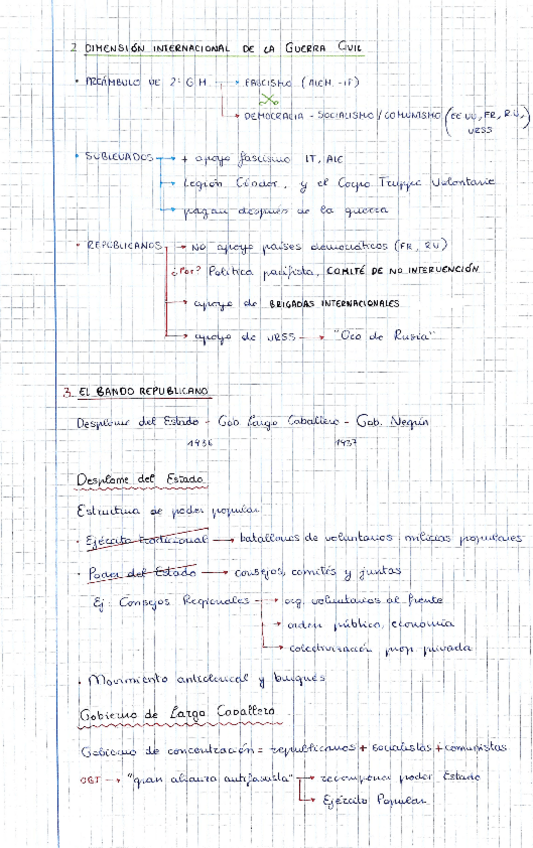 2. DIMENSIÓN INTERNACIONAL DE LA GUERRA CIVIL
• PREÁMBULO DE 2ª G M → FASCISMO (ALEM - IT)
→ DEMOCRACIA - SOCIALISMO / COMUNISMO (EE UU, FR, R.U,
URSS
• SUBLEVADOS → + apoyo fascismo IT, ALE
→ Legión Cóndor, y el Corpo Truppe Volontarie
→ pagan después de la guerra
• REPUBLICANOS → NO apoyo países democráticos (FR, RU)
¿Por? Política pacifista, COMITÉ DE NO INTERVENCIÓN
→ apoyo de BRIGADAS INTERNACIONALES
→ apoyo de URSS → "Oro de Rusia"
3. EL BANDO REPUBLICANO
Desplome del Estado - Gob Largo Caballero - Gob. Negrín
1936 1937
Desplome del Estado
Estructura de poder popular
• Ejército tradicional → batallones de voluntarios milicias populares
• Poder del Estado → consejos, comités y juntas
Ej: Consejos Regionales → org. voluntarios al frente
→ orden público, economía
→ colectivización prop. privada
• Movimiento anticlerical y burgués
Gobierno de Largo Caballero
Gobierno de concentración = republicanos + socialistas + comunistas
OBJ → "gran alianza antifascista" → recomponer poder Estado
→ Ejército Popular